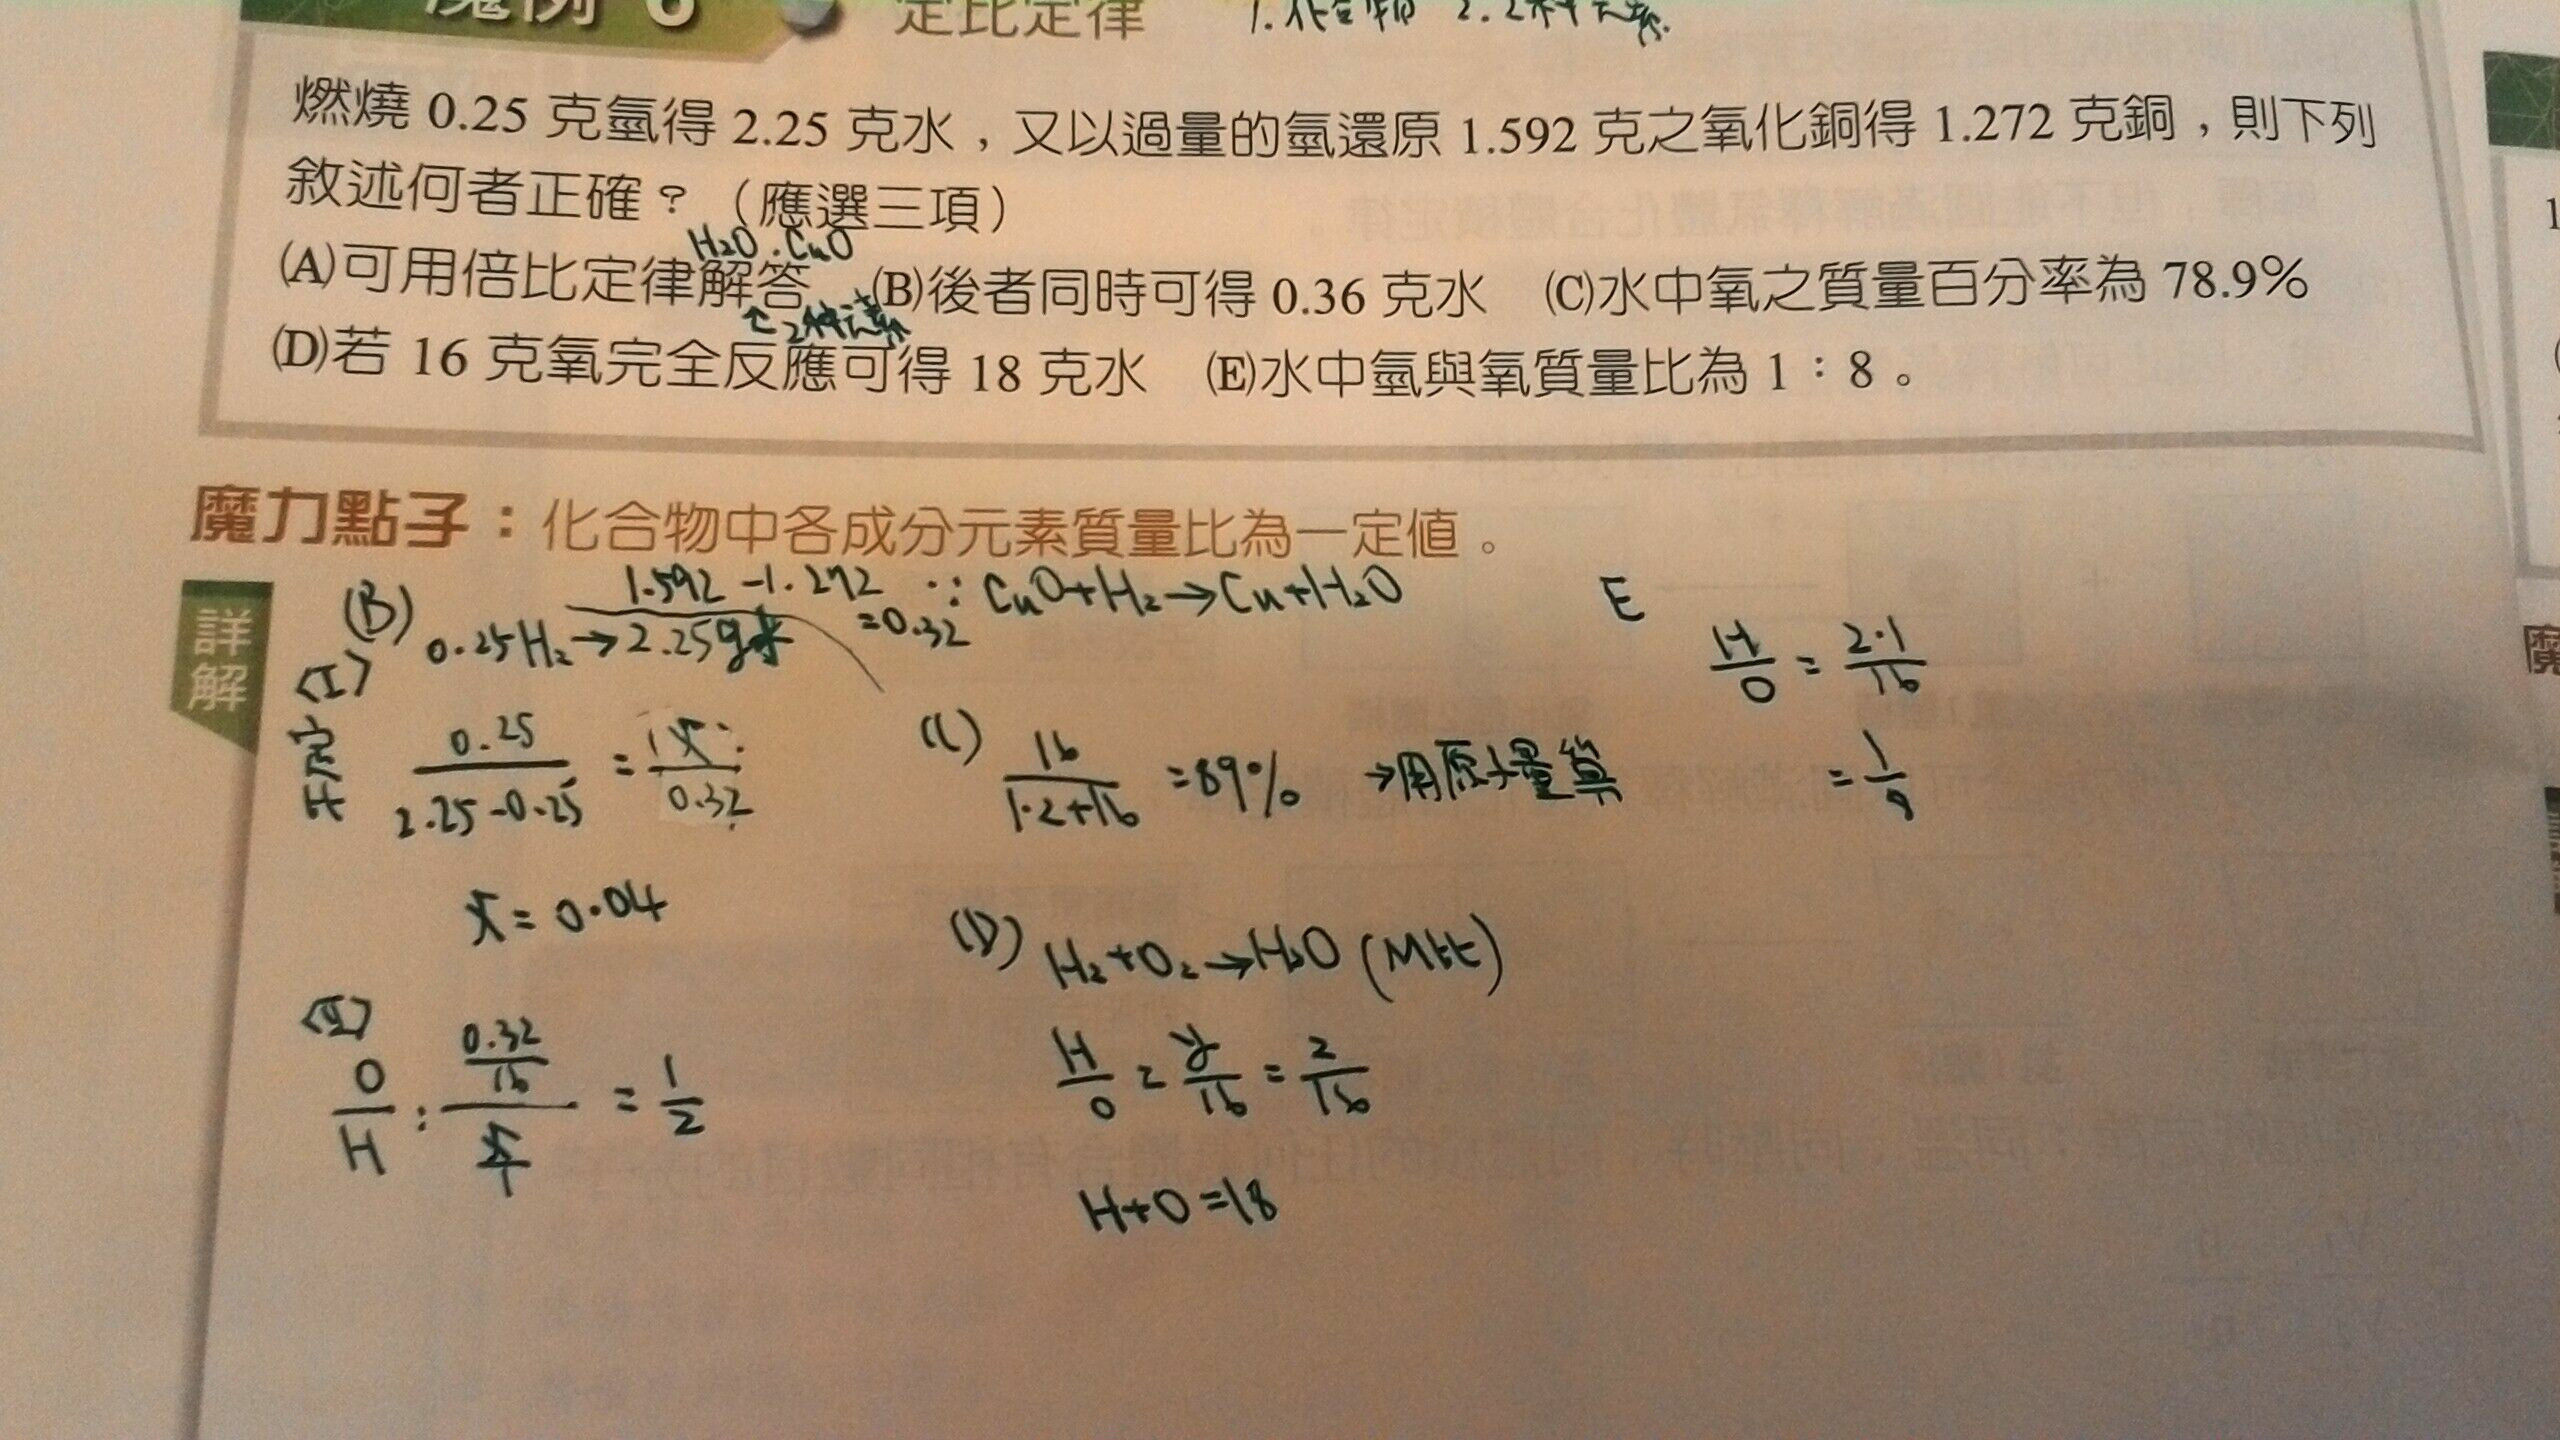 魔例 6 定比定律 1. 化合物 2. 2種元素.
燃燒 0.25 克氫得 2.25 克水，又以過量的氫還原 1.592 克之氧化銅得 1.272 克銅，則下列
敘述何者正確？（應選三項）
H₂O . CuO
(A)可用倍比定律解答 (B)後者同時可得 0.36 克水 (C)水中氧之質量百分率為 78.9%
↑2種元素
(D)若 16 克氧完全反應可得 18 克水 (E)水中氫與氧質量比為 1：8。
魔力點子：化合物中各成分元素質量比為一定值。
詳解
(B) 1.592 - 1.272 = 0.32 ∵ CuO + H₂ → Cu + H₂O
0.25 H₂ → 2.25g水
<I>
定比 0.25 / 2.25-0.25 = x / 0.32
x = 0.04
<II>
O/H : 0.32/16 / x = 1/2
(C) 16 / 1·2+16 = 89% → 用原子量算
(D) H₂ + O₂ → H₂O (M比)
H/O = y/16 = 2/16
H+O = 18
E
H/O = 2·1/16
= 1/8
魔